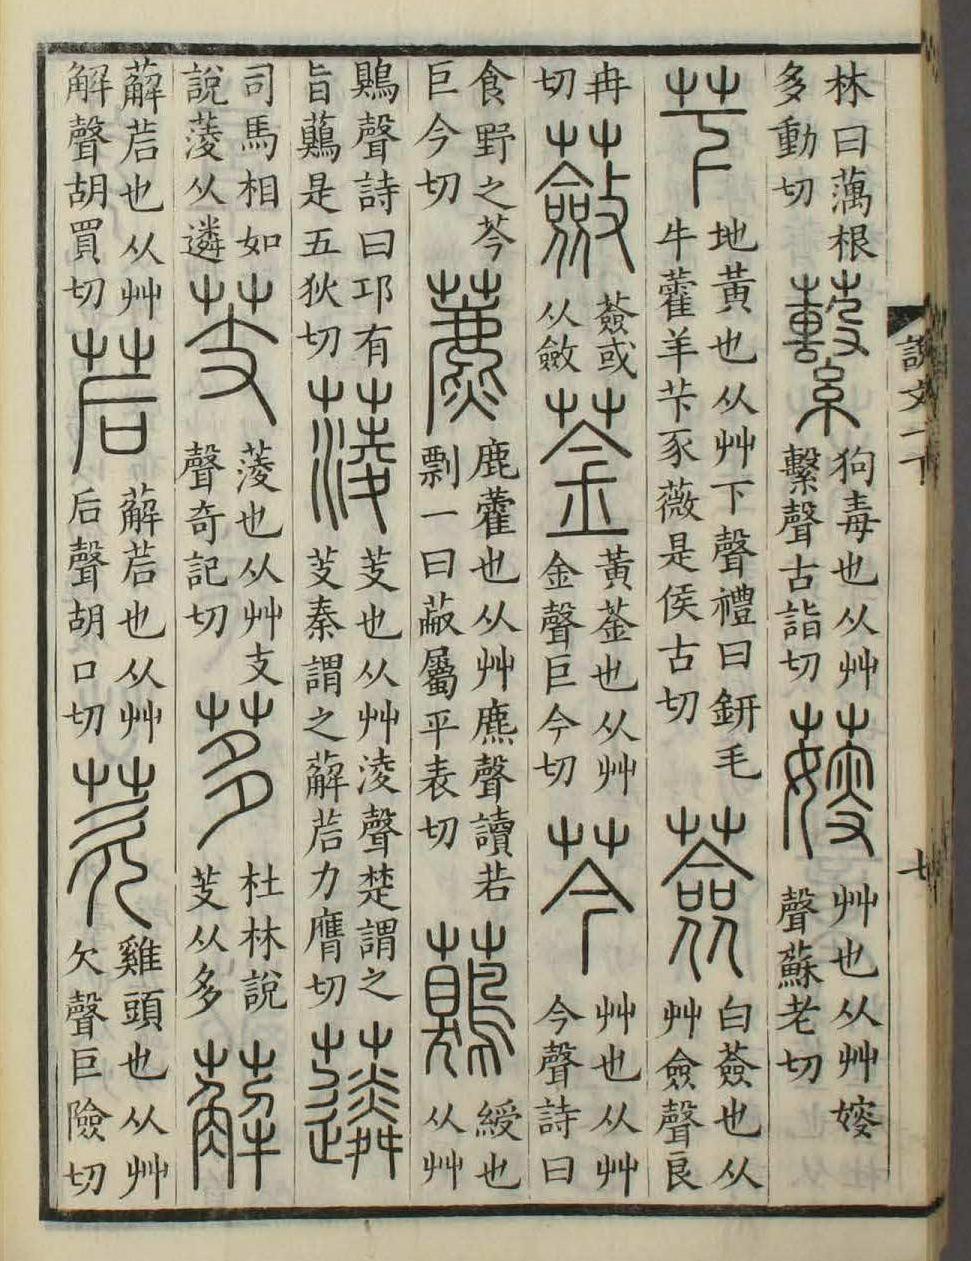 林曰蕅根多動切蘻狗毒也从艸繫聲古詣切䕅艸也从艸㛮聲蘇老切
芐地黃也从艸下聲禮曰鈃毛牛藿羊芐豕薇是侯古切薟白薟也从艸僉聲良
冉切蘞薟或从斂菳黃菳也从艸金聲巨今切芩艸也从艸今聲詩曰
食野之芩巨今切藨鹿藿也从艸麃聲讀若剽一曰蔽屬平表切虉綬也从艸
鶪聲詩曰邛有旨虉是五狄切蔆芰也从艸淩聲楚謂之芰秦謂之薢茩力膺切䔖
司馬相如說蔆从遴芰蔆也从艸支聲奇記切茤杜林說芰从多薢
薢茩也从艸解聲胡買切茩薢茩也从艸后聲胡口切芡雞頭也从艸欠聲巨險切
說文一下
七